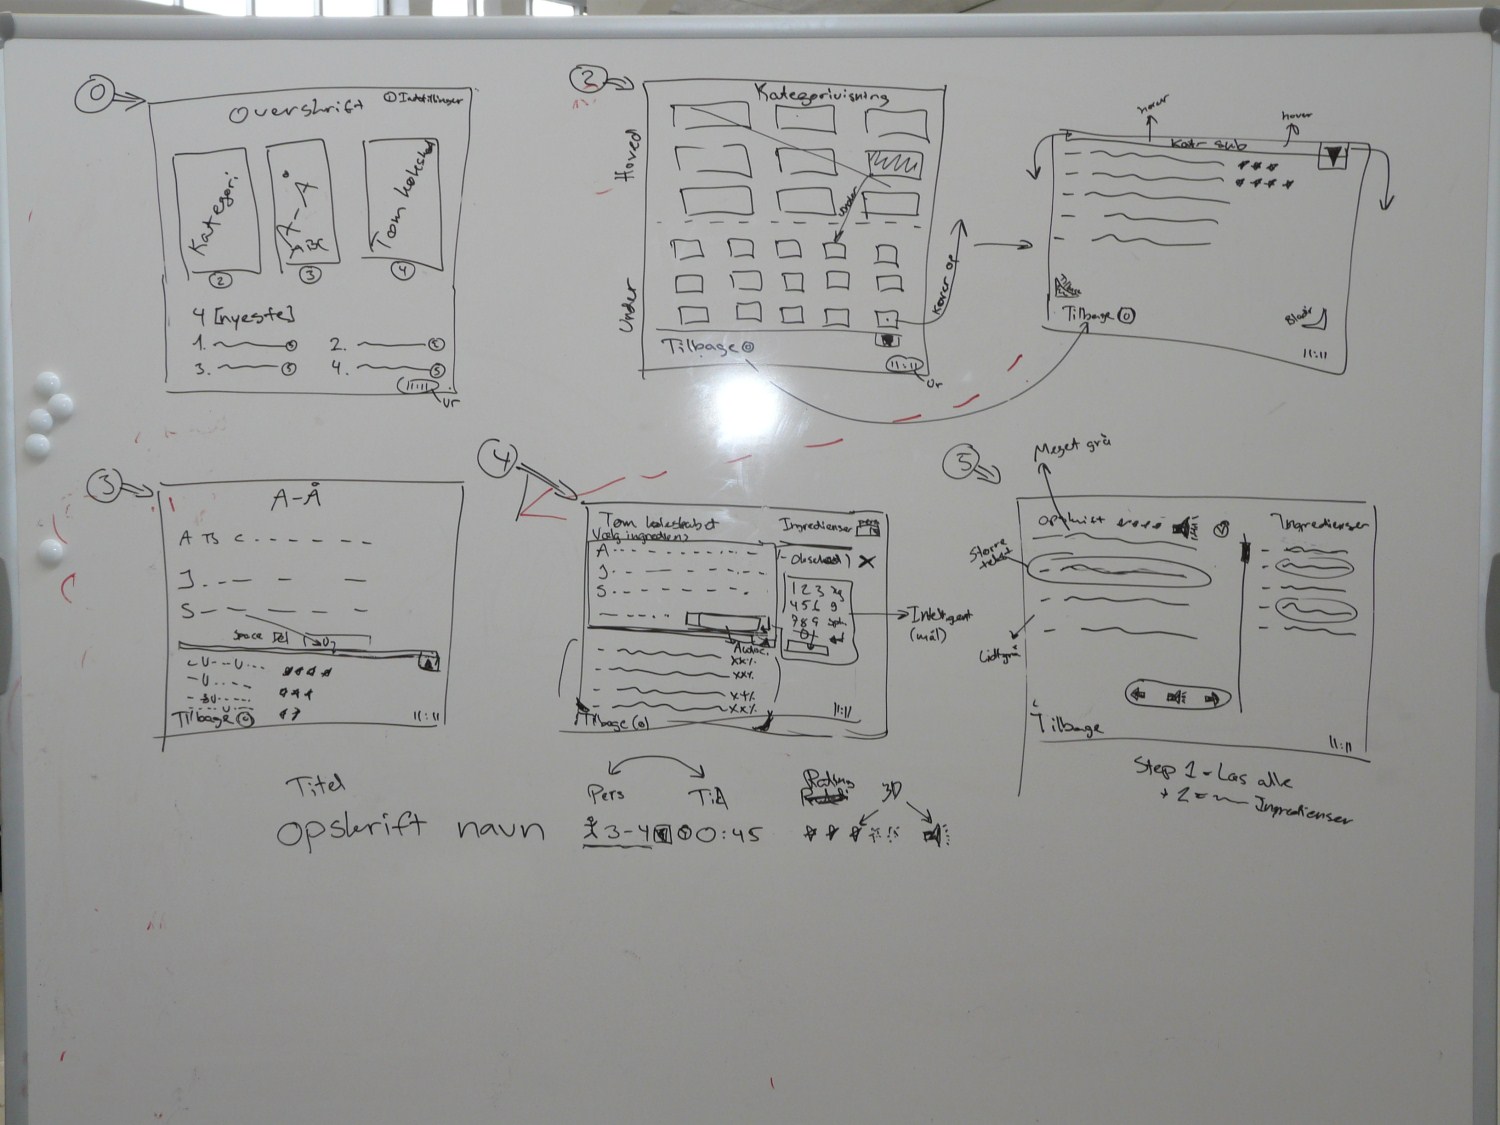 0
Overskrift
Indstillinger
Kategori
A-Å
ABC
Tøm køleskab
2
3
4
4 [nyeste]
1.
5
2.
5
3.
5
4.
5
11:11
Ur
2
Kategorivisning
Hoved
Under
Under
Kører op
Tilbage 0
11:11
Ur
hover
hover
Katr sub
Tilbage 0
Bladr
11:11
3
A-Å
A B C
J
S
Space Del
Tilbage 0
11:11
4
Tøm køleskabet
Vælg ingrediens
Ingredienser
A
J
S
1 2 3 kg
4 5 6 g
7 8 9
0
Intelligent
(mål)
XX%
XX%
XX%
XX%
Tilbage (0)
11:11
5
Meget grå
Opskrift
Ingredienser
Større
tekst
Lidt grå
Tilbage
11:11
Step 1 = Læs alle
+ 2 = Ingredienser
Titel
Pers
Tid
Rating
3D
Opskrift navn
3-4
0:45